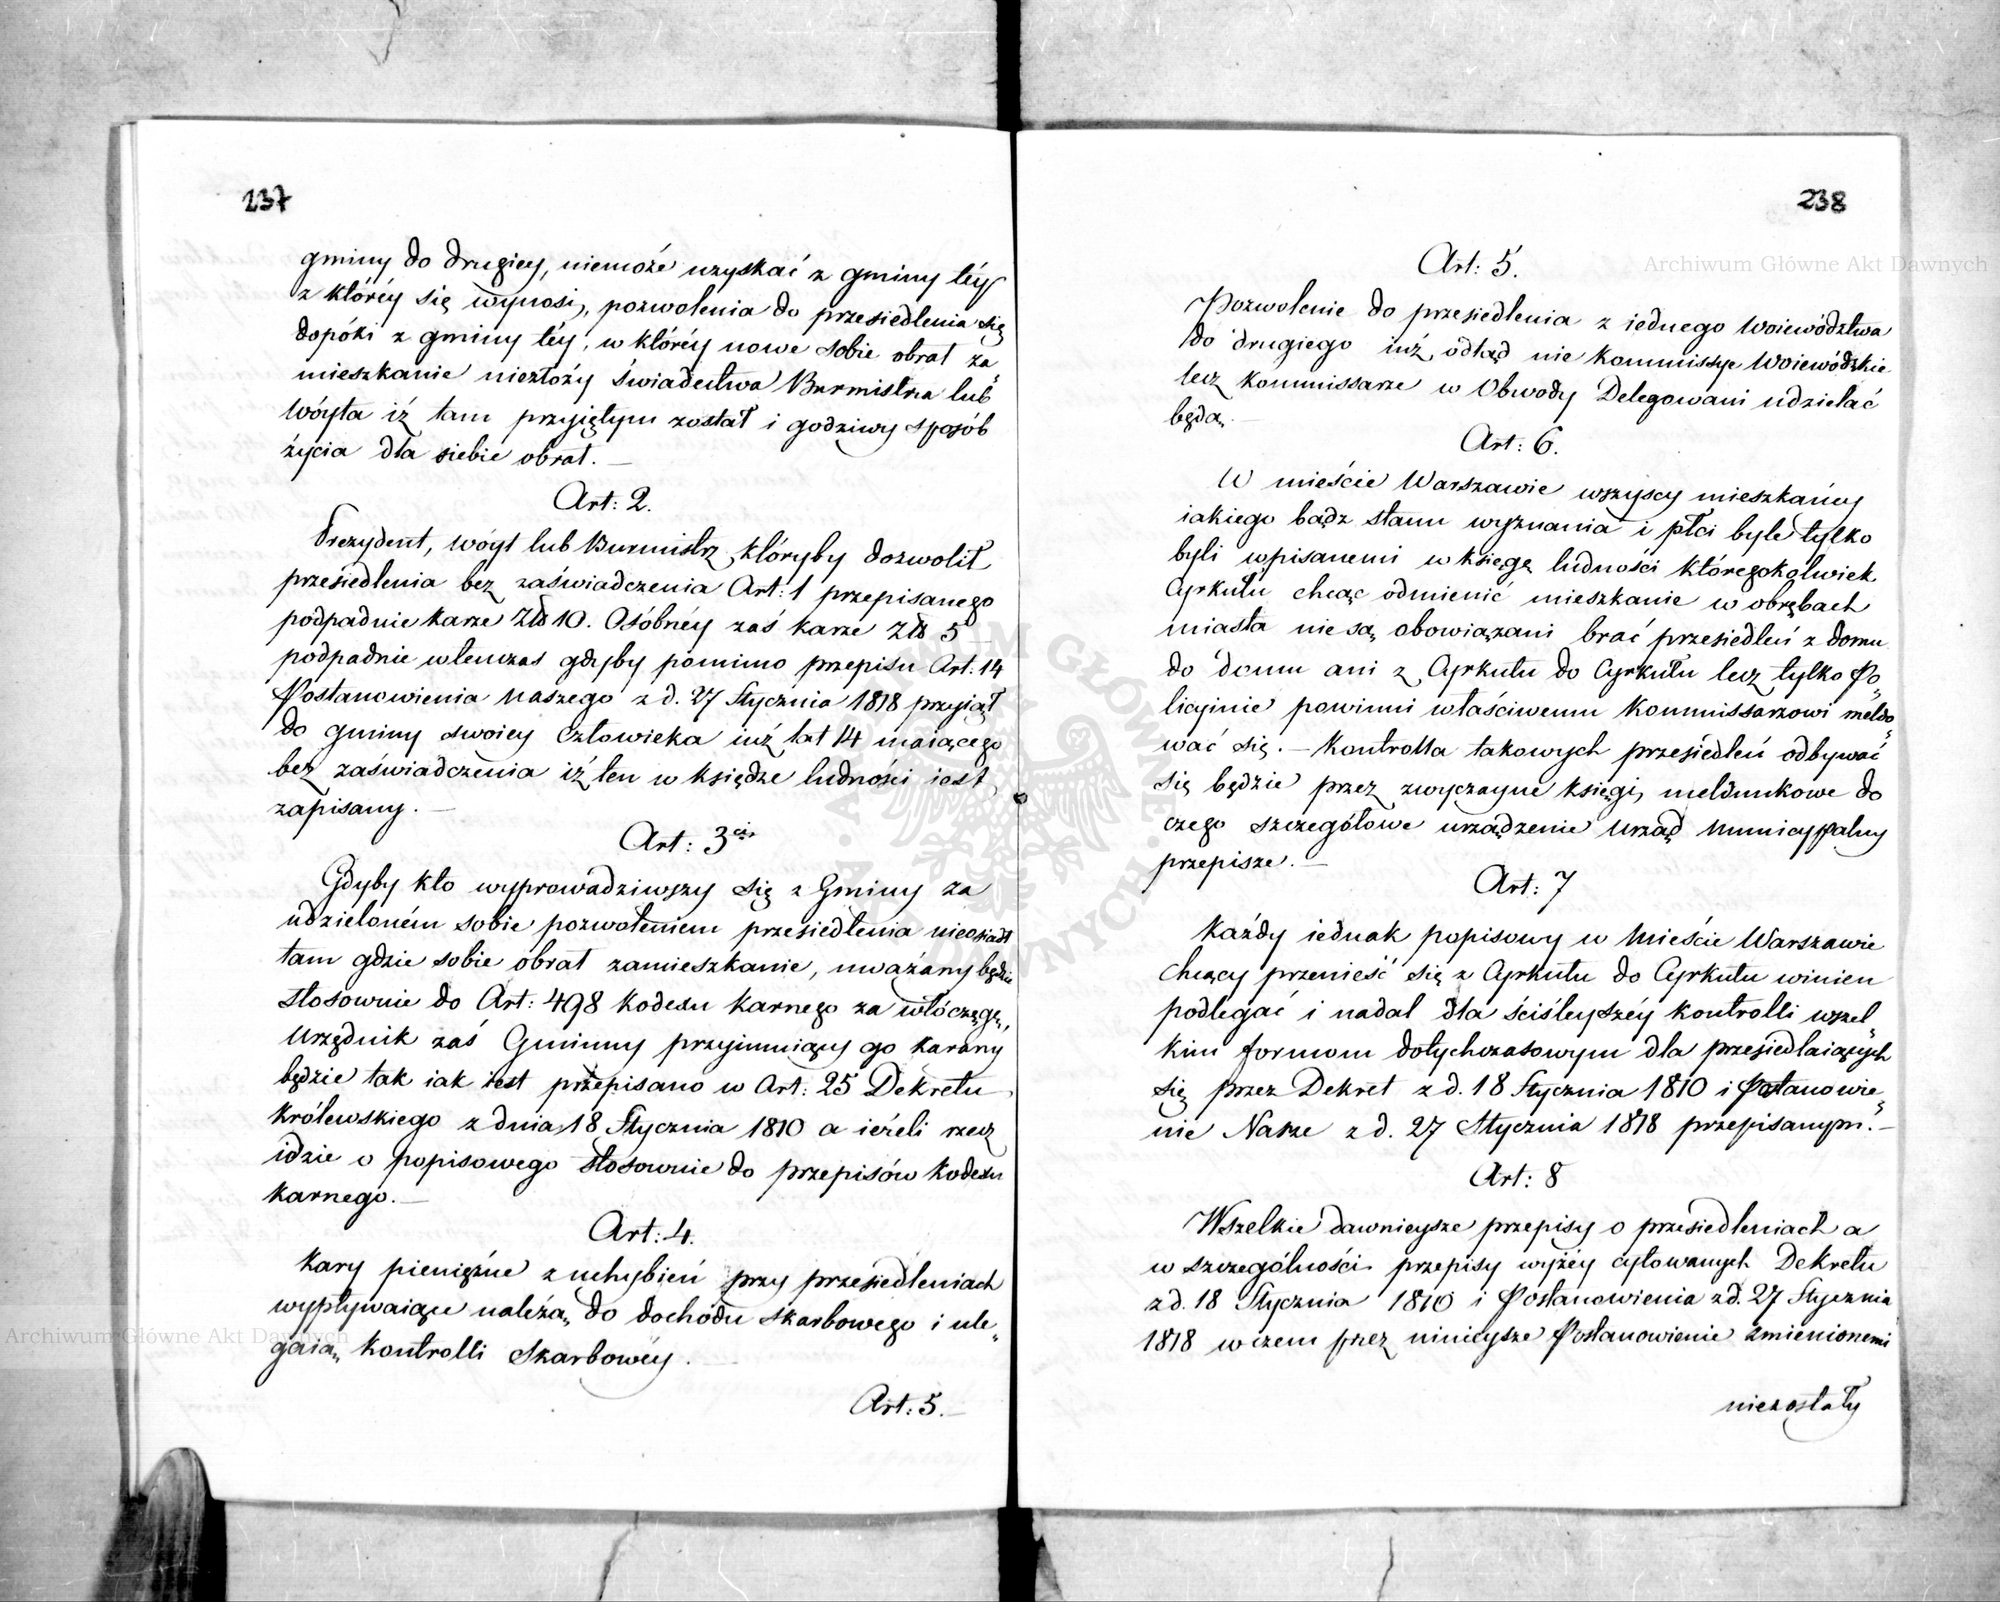 237
gminy do drugiey, niemoże uzyskać z gminy téy
z któréy się wynosi, pozwolenia do przesiedlenia się
dopóki z gminy téy, w któréy nowe sobie obrał za„
mieszkanie niezłoży świadectwa Burmistrza lub
Wóyta iż tam przyiętym został i godziwy sposób
życia dla siebie obrał. —
Art: 2.
Prezydent, Wóyt lub Burmistrz któryby dozwolił
przesiedlenia bez zaświadczenia Art: 1 przepisanego
podpadnie karze Złp 10. Osóbnéy zaś karze Złp 5
podpadnie wtenczas gdyby pomimo przepisu Art: 14
Postanowienia Naszego z d. 27 Stycznia 1818 przyiął
do gminy swoiey człowieka iuż lat 14 maiącego
bez zaświadczenia iż ten w księdze ludności iest
zapisany. —
Art: 3ci
Gdyby kto wyprowadziwszy się z Gminy za
udzieloném sobie pozwoleniem przesiedlenia nieosiadł
tam gdzie sobie obrał zamieszkanie, uważany będzie
stosownie do Art: 498 Kodexu Karnego za włóczęgę,
Urzędnik zaś Gminny przyimuiący go karany
będzie tak iak iest przepisano w Art: 25 Dekretu
Królewskiego z dnia 18 Stycznia 1810 a ieżeli rzecz
idzie o popisowego stosownie do przepisów Kodexu
Karnego. —
Art: 4.
Kary pieniężne z uchybień przy przesiedleniach
wypływaiące należą do dochodu Skarbowego i ule„
gaią Kontrolli Skarbowéy.
Art: 5. —
238
Art: 5.
Pozwolenie do przesiedlenia z iednego Woiewództwa
do drugiego iuż odtąd nie Kommissye Woiewódzkie
lecz Kommissarze w Obwody Delegowani udzielać
będą. —
Art: 6.
W mieście Warszawie wszyscy mieszkańcy
iakiego bądz stanu wyznania i płci byle tylko
byli wpisanemi w księgę ludności któregokolwiek
Cyrkułu chcąc odmienić mieszkanie w obrębach
miasta nie są obowiązani brać przesiedleń z domu
do domu ani z Cyrkułu do Cyrkułu lecz tylko Po„
licyinie powinni właściwemu Kommissarzowi meldo„
wać się. — Kontrolla takowych przesiedleń odbywać
się będzie przez zwyczayne księgi meldunkowe do
czego szczegółowe urządzenie Urząd Municypalny
przepisze. —
Art: 7
Każdy iednak popisowy w Mieście Warszawie
chcący przenieść się z Cyrkułu do Cyrkułu winien
podlegać i nadal dla ściśleyszéy kontrolli wszel„
kim formom dotychczasowym dla przesiedlaiących
się przez Dekret z d. 18 Stycznia 1810 i Postanowie„
nie Nasze z d. 27 Stycznia 1818 przepisanym. —
Art: 8
Wszelkie dawnieysze przepisy o przesiedleniach a
w szczególności przepisy wyżéy cytowanych Dekretu
z d. 18 Stycznia 1810 i Postanowienia z d. 27 Stycznia
1818 w czem przez ninieysze Postanowienie zmienionemi
niezostały
Archiwum Główne Akt Dawnych
Archiwum Główne Akt Dawnych